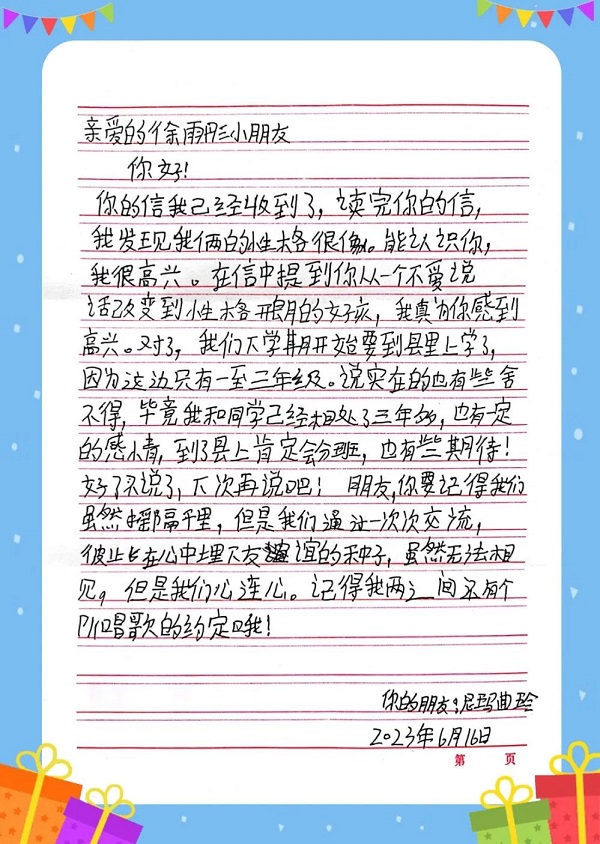 亲爱的徐雨彤小朋友
你好!
你的信我已经收到了,读完你的信,
我发现我俩的性格很像。能认识你,
我很高兴。在信中提到你从一个不爱说
话改变到性格开朗的女孩,我真为你感到
高兴。对了,我们下学期开始要到县里上学了,
因为这边只有一至三年级。说实在的也有些舍
不得,毕竟我和同学已经相处了三年多,也有一定
的感情,到了县上肯定会分班,也有些期待!
好了不说了,下次再说吧! 朋友,你要记得我们
虽然相隔千里,但是我们通过一次次交流,
彼此在心中埋下友谊的种子,虽然无法相
见,但是我们心连心。记得我两之间还有个
唱歌的约定哦!
你的朋友:尼玛曲玲
2023年6月16日
第 页